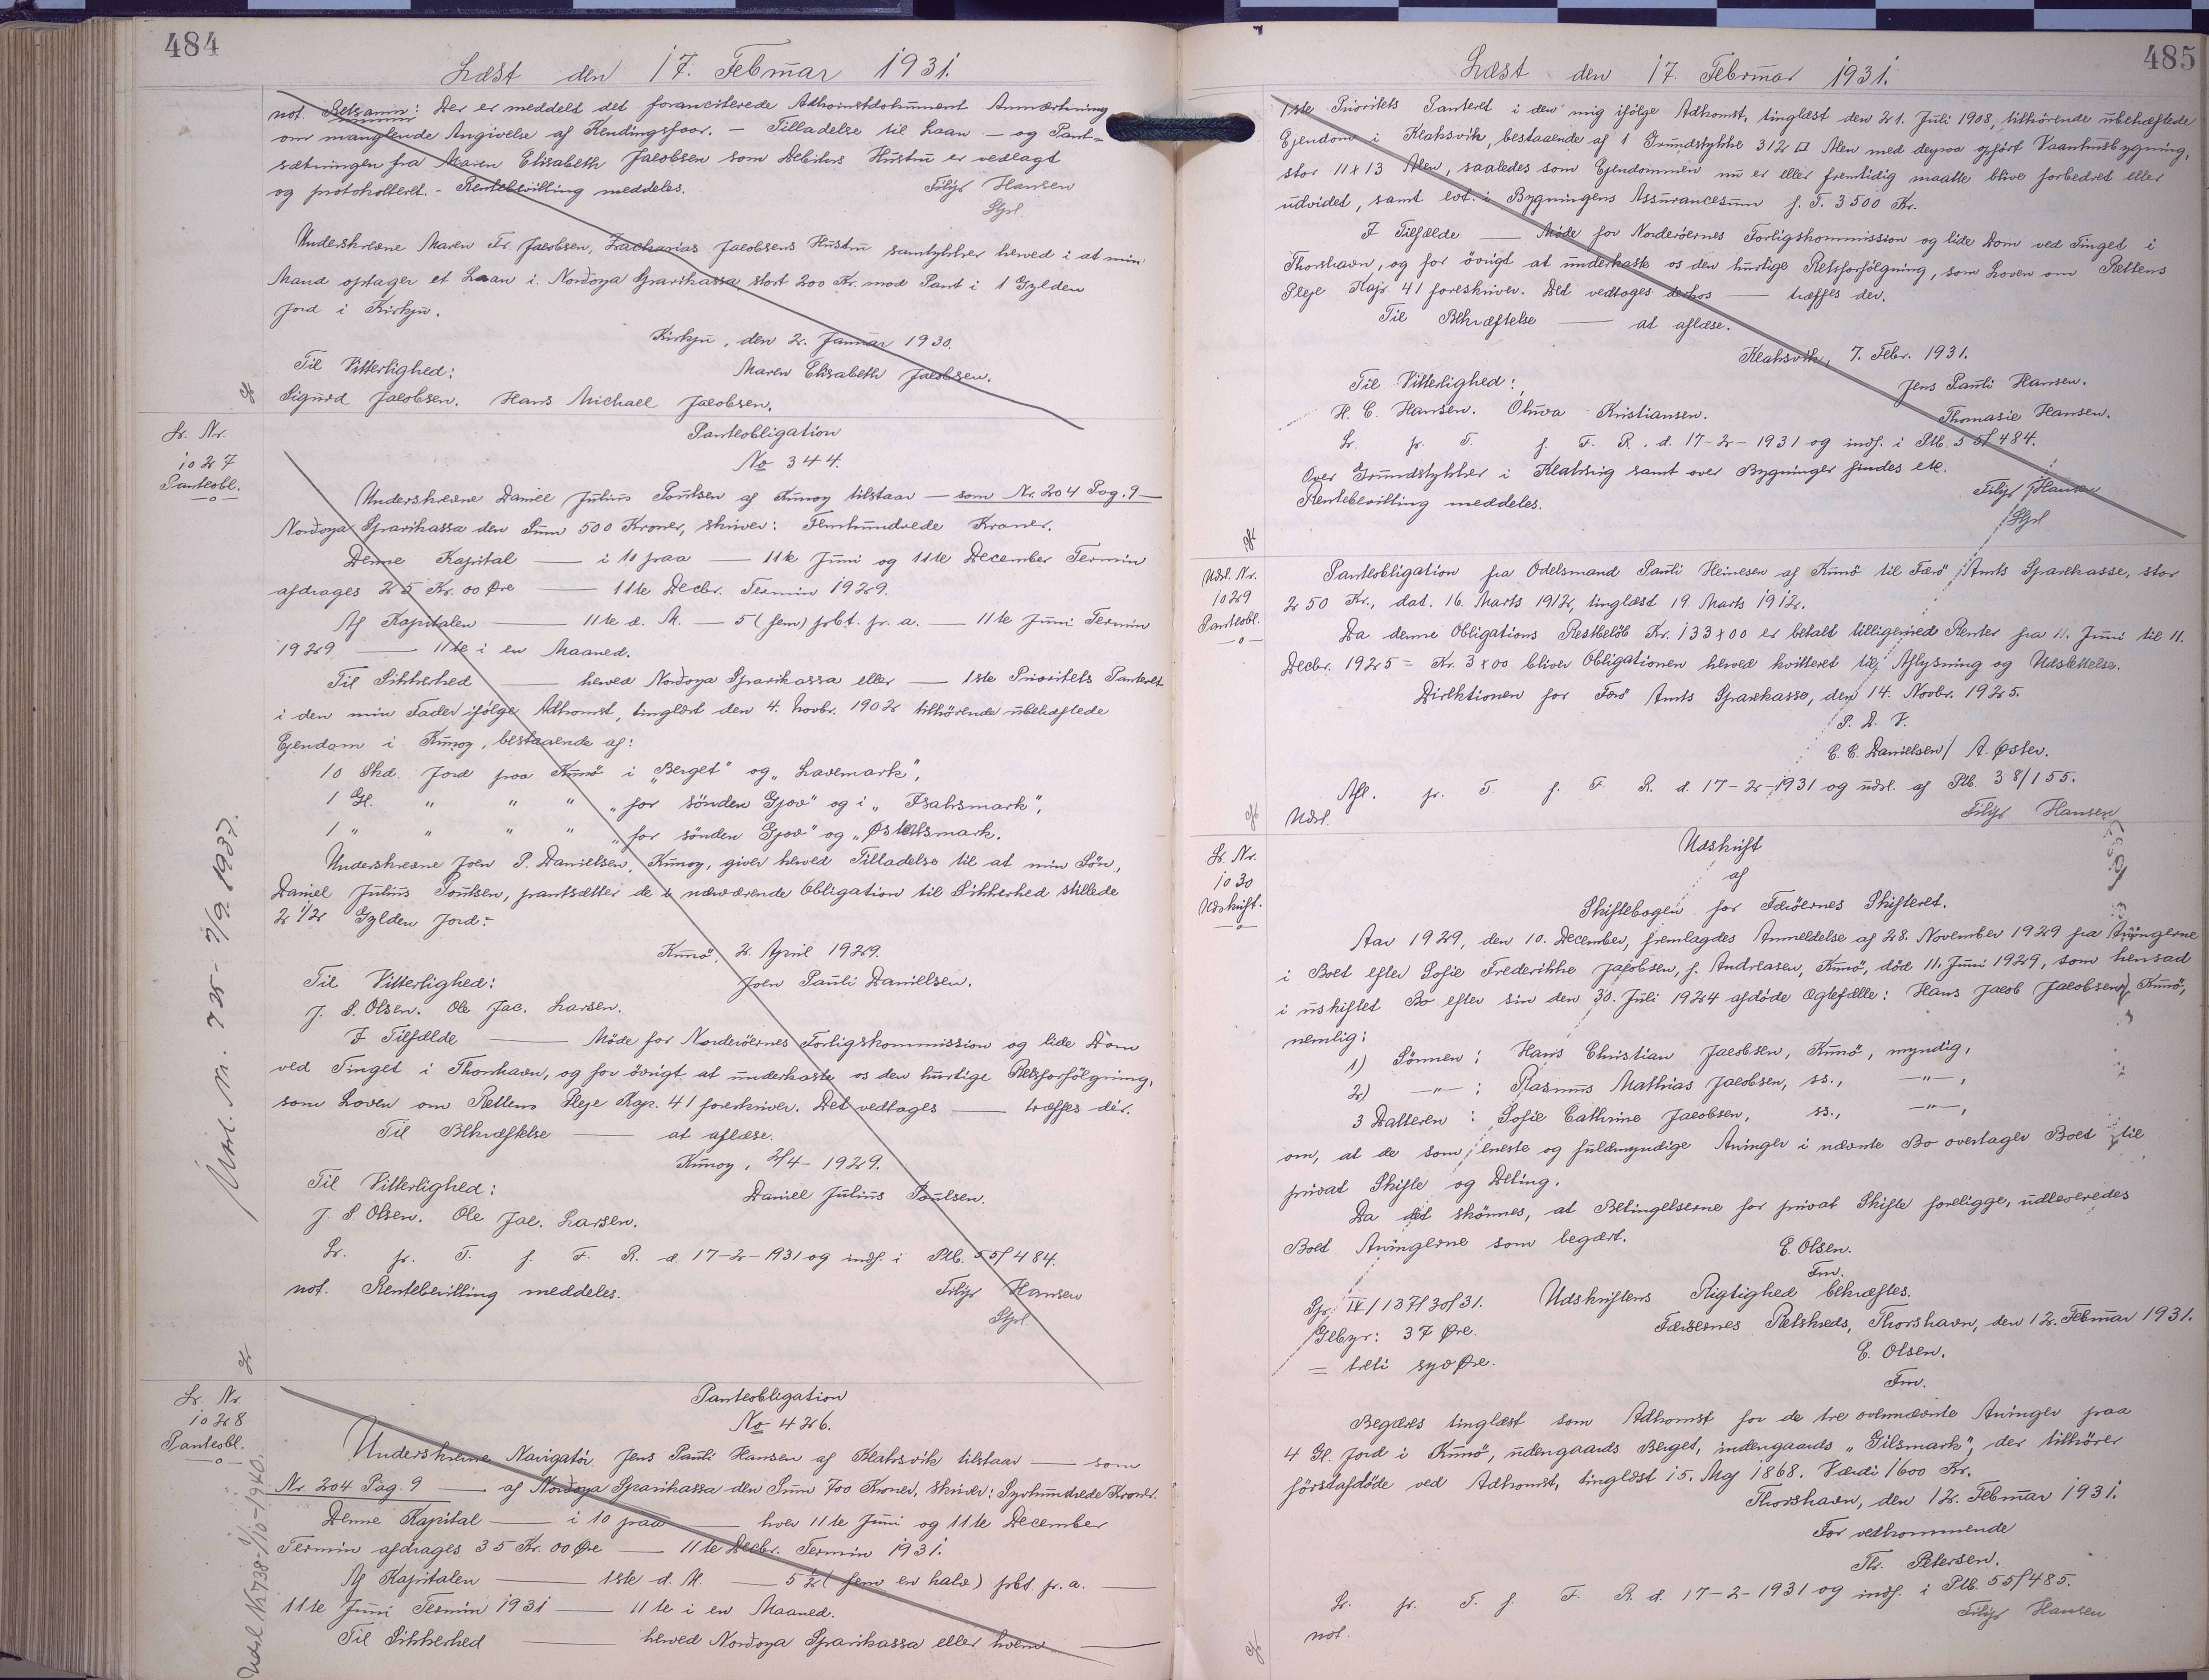 484
Læst den 17. Februar 1931.
not. Retsanm: Der er meddelt det foranciterede Adkomstdokument Anmærkning
om manglende Angivelse af Kendingsfoar. – Tilladelse til Laan – og Pant-
sætningen fra Maren Elisabeth Jacobsen som Debitors Hustru er vedlagt
og protokolleret. - Rentebevilling meddeles.
Filip Hansen
Stpl.
Underskrevne Maren Fr. Jacobsen, Zacharias Jacobsens Hustru samtykker herved i at min
Mand optager et Laan i Norðoya Sparikassa, stort 200 Kr. mod Pant i 1 Gylden
Jord i Kirkju.
Kirkju, den 2. Januar 1930.
Til Vitterlighed:
Maren Elisabeth Jacobsen.
Sigurd Jacobsen. Hans Michael Jacobsen.
Lr. Nr.
1027
Panteobl.
Panteobligation
No 344.
Underskrevne Daniel Julius Poulsen af Kunoy tilstaar — som Nr. 204 Pag. 9 —
Norðoya Sparikassa den Sum 500 Kroner, skriver: Femhundrede Kroner.
Denne Kapital — i 10 paa — 11te Juni og 11te December Termin
afdrages 25 Kr. 00 Øre — 11te Decbr. Termin 1929.
Af Kapitalen — 11te d. M. — 5 (fem) prct. pr. a. — 11te Juni Termin
1929 — 11te i en Maaned.
Til Sikkerhed — herved Norðoya Sparikassa eller — 1ste Prioritets Panteret
i den min Fader ifölge Adkomst, tinglæst den 4. Novbr. 1902 tilhörende ubehæftede
Ejendom i Kunoy, bestaaende af:
10 Skd. Jord paa Kunö i „Berget" og „Lavemark",
1 Gl. " " " „for sönden Gjov" og i „Isaksmark",
1 " " " " „for sönden Gjov" og „Østensmark.
Underskrevne Joen P. Danielsen, Kunoy, giver herved Tilladelse til at min Sön,
Daniel Julius Poulsen, pantsætter de i nærværende Obligation til Sikkerhed stillede
2 1/2 Gylden Jord:
Kunö, 2. April 1929.
Til Vitterlighed:
Joen Pauli Daniellsen.
J. S. Olsen. Ole Jac. Larsen.
I Tilfælde — Möde for Norderöernes Forligskommission og lide Dom
ved Tinget i Thorshavn, og for övrigt at underkaste os den hurtige Retsforfölgning,
som Loven om Rettens Pleje Kap. 41 foreskriver. Det vedtages — træffes dér.
Til Bekræftelse — at aflæse.
Kunoy, 2/4 - 1929.
Til Vitterlighed:
Daniel Julius Poulsen.
J. S. Olsen. Ole Jac. Larsen.
Lr. pr. T. f. F. R. d. 17-2-1931 og indf. i Ptb. 55/484.
not. Rentebevilling meddeles.
Filip Hansen
Stpl
Udsl. Nr. 725 - 7/9. 1937.
Lr. Nr.
1028
Panteobl.
Panteobligation
No 426.
Underskrevne Navigatör Jens Pauli Hansen af Klaksvik tilstaar — som
Nr. 204 Pag. 9 — af Norðoya Sparikassa den Sum 700 Kroner, skriver: Syvhundrede Kroner.
Denne Kapital — i 10 paa — hver 11te Juni og 11te December
Termin afdrages 35 Kr. 00 Øre — 11te Decbr. Termin 1931.
Af Kapitalen — 1ste d. M. — 5 1/2 (fem en halv) prct. pr. a. —
11te Juni Termin 1931 — 11te i en Maaned.
Til Sikkerhed — herved Norðoya Sparikassa eller hvem —
Udsl. Nr. 738 - 1/10 - 1940.
485
Læst den 17. Februar 1931.
1ste Prioritets Panteret i den mig ifölge Adkomst, tinglæst den 21. Juli 1908, tilhörende ubehæftede
Ejendom i Klaksvik, bestaaende af 1 Grundstykke 312 □ Alen med derpaa opfört Vaaningsbygning,
stor 11 x 13 Alen, saaledes som Ejendommen nu er eller fremtidig maatte blive forbedret eller
udvidet, samt evt. i Bygningens Assurancesum p. T. 3500 Kr.
I Tilfælde — Möde for Norderöernes Forligskommission og lide Dom ved Tinget i
Thorshavn, og for övrigt at underkaste os den hurtige Retsforfölgning, som Loven om Rettens
Pleje Kap. 41 foreskriver. Det vedtages derhos — træffes der.
Til Bekræftelse — at aflæse.
Klaksvik, 7. Febr. 1931.
Til Vitterlighed:
Jens Pauli Hansen.
H. C. Hansen. Óluva Kristiansen.
Thomasie Hansen.
Lr. pr. T. f. F. R. d. 17-2-1931 og indf. i Ptb. 55/484.
Over Grundstykker i Klaksvig samt over Bygninger findes etc.
Rentebevilling meddeles.
Filip Hansen
Stpl
Udsl. Nr.
1029
Panteobl.
Panteobligation fra Odelsmand Pauli Heinesen af Kunö til Færö Amts Sparekasse, stor
250 Kr., dat. 16. Marts 1912, tinglæst 19. Marts 1912.
Da denne Obligations Restbelöb Kr. 133 x 00 er betalt tilligemed Renter fra 11. Juni til 11.
Decbr. 1925 = Kr. 3 x 00 bliver Obligationen herved kvitteret til Aflysning og Udslettelse.
Direktionen for Færö Amts Sparekasse, den 14. Novbr. 1925.
P. D. V.
C. C. Danielsen / A. Øster.
Afl. pr. T. f. F. R. d. 17-2-1931 og udsl. af Ptb. 38/155.
Udsl.
Filip Hansen
Lr. Nr.
1030
Udskrift.
Udskrift
af
Skiftebogen for Færöernes Skifteret.
Aar 1929, den 10. December, fremlagdes Anmeldelse af 28. November 1929 fra Arvingerne
i Boet efter Sofie Frederikke Jacobsen, f. Andreasen, Kunö, död 11. Juni 1929, som hensad
i uskiftet Bo efter sin den 30. Juli 1924 afdöde Ægtefælle: Hans Jacob Jacobsen, Kunö,
nemlig:
1) Sönnen: Hans Christian Jacobsen, Kunö, myndig,
2) —"— : Rasmus Mathias Jacobsen, ss., —"—,
3 Datteren: Sofie Cathrine Jacobsen, ss., —"—,
om, at de som eneste og fuldmyndige Arvinger i nævnte Bo overtager Boet til
privat Skifte og Deling.
Da det skönnes, at Betingelserne for privat Skifte foreligge, udleveredes
Boet Arvingerne som begært.
E. Olsen.
Fm.
Gpr. IX/137/30/31.
Udskriftens Rigtighed bekræftes.
Gebyr: 37 Øre.
Færöernes Retskreds, Thorshavn, den 12. Februar 1931.
= treti syv Øre.
E. Olsen.
Fm.
Begæres tinglæst som Adkomst for de tre ovennævnte Arvinger paa
4 Gl. Jord i Kunö, udengaards Berget, indengaards „Gilsmark", der tilhörer
förstafdöde ved Adkomst, tinglæst 15. Maj 1868. Værdi 1600 Kr.
Thorshavn, den 12. Februar 1931.
For vedkommende
Th. Petersen.
Lr. pr. T. f. F. R. d. 17-2-1931 og indf. i Ptb. 55/485.
not.
Filip Hansen